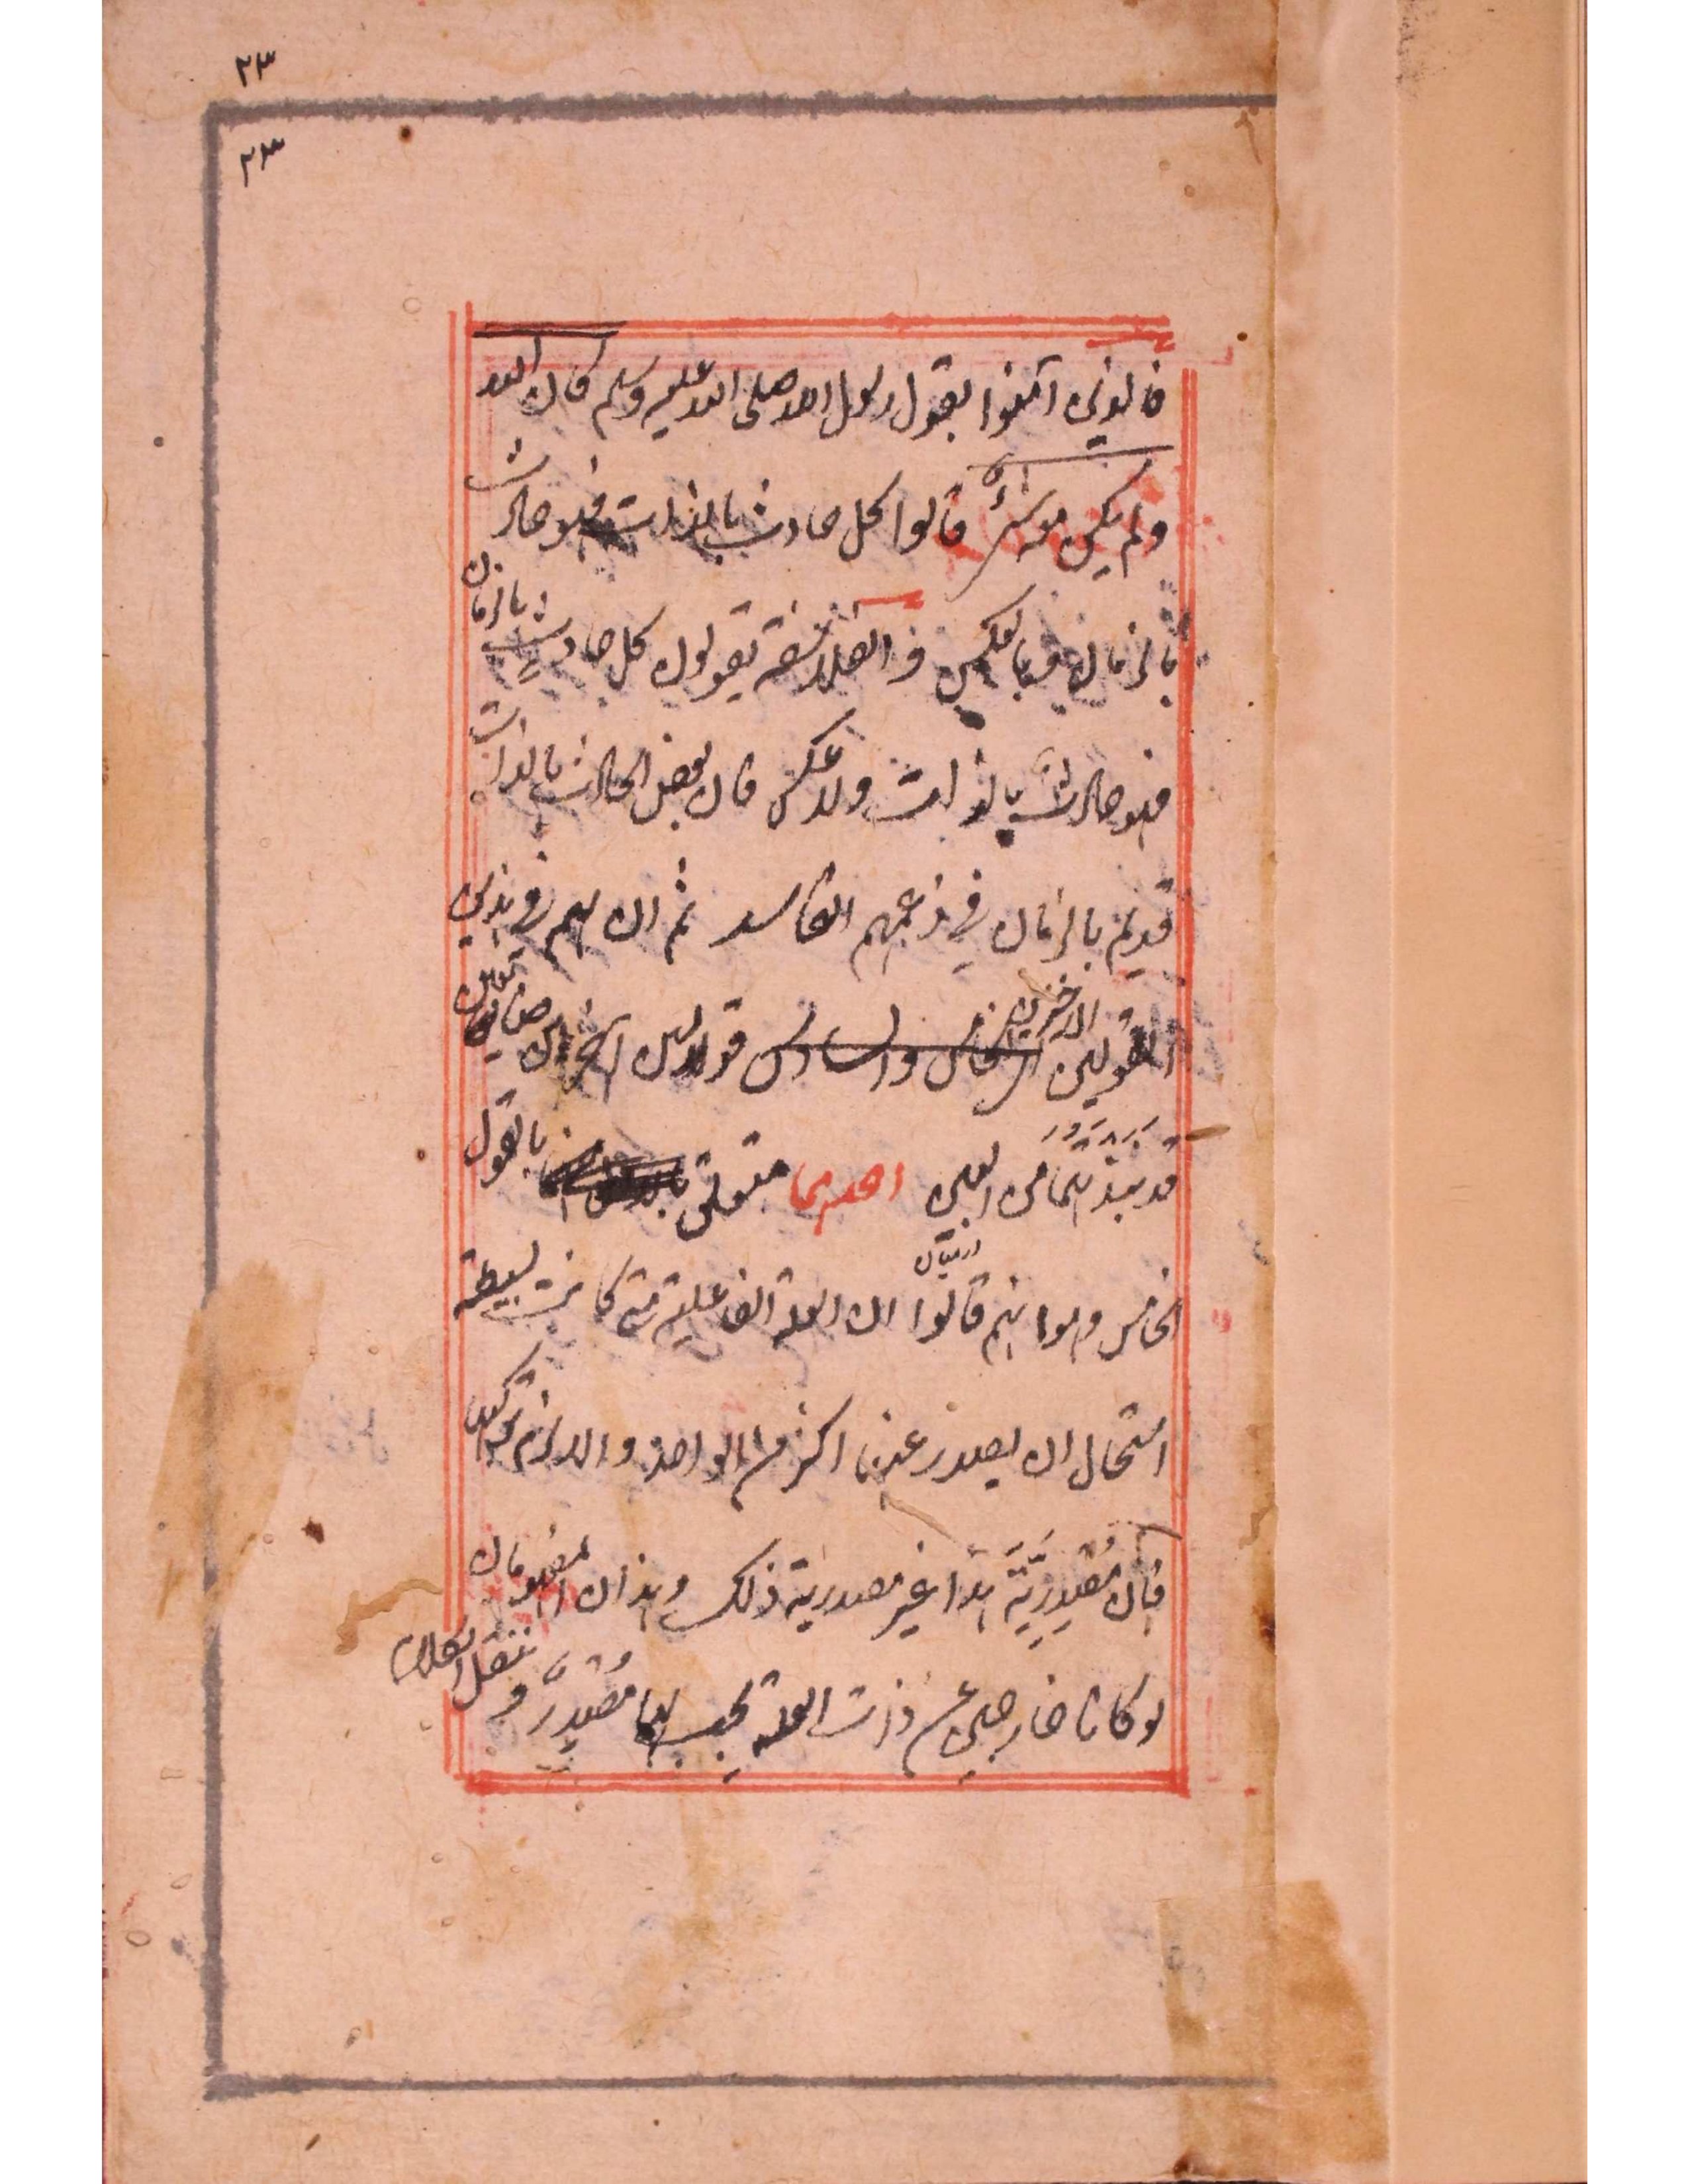 ٢٣
٢٣
فالذين آمنوا بقول رسول الله صلى الله عليه وسلم كان الله
ولم يكن معه شيء قالوا كل حادث بالذات فهو حادث
بالزمان وبالعكس والفلاسفة يقولون كل حادث بالزمان
فهو حادث بالذات ولا عكس فان بعض الحادث بالذات
قديم بالزمان في زعمهم الفاسد ثم ان لهم في هذين
القولين الاخيرين الخامس والسادس قولين آخرين
قد نبذتهما من البين احدهما متعلق بالقول
الخامس وهو انهم قالوا ان العلة الفاعلية متى كانت بسيطة
استحال ان يصدر عنها اكثر من الواحد والا لزم تركيب
فان مصدرية هذا غير مصدرية ذلك وهذان المفهومان
لو كانا خارجين عن ذات العلة يجب لهما مصدر وننقل الكلام